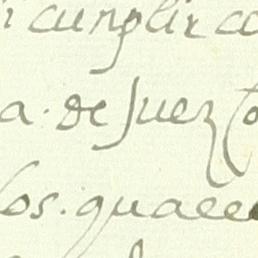 i cunplir co
a. de Juez Co
los. quales